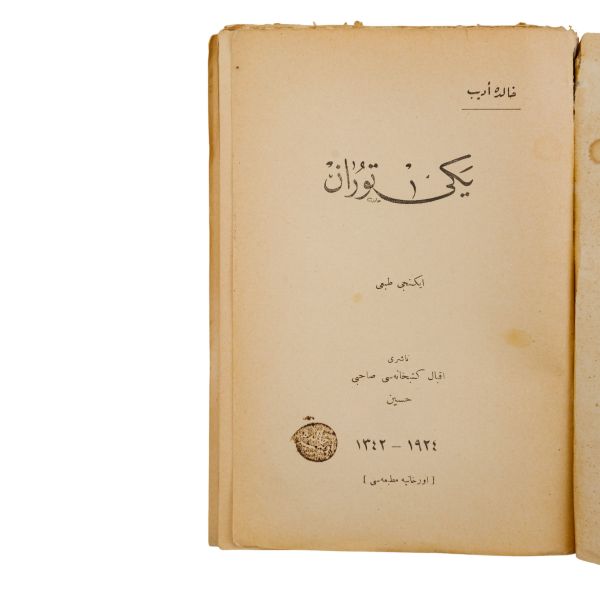 خالده أديب
يكی توران
ايكنجی طبعی
ناشری
اقبال كتبخانه‌سی صاحبی
حسين
١٩٢٤ – ١٣٤٢
[ اورخانيه مطبعه‌سی ]